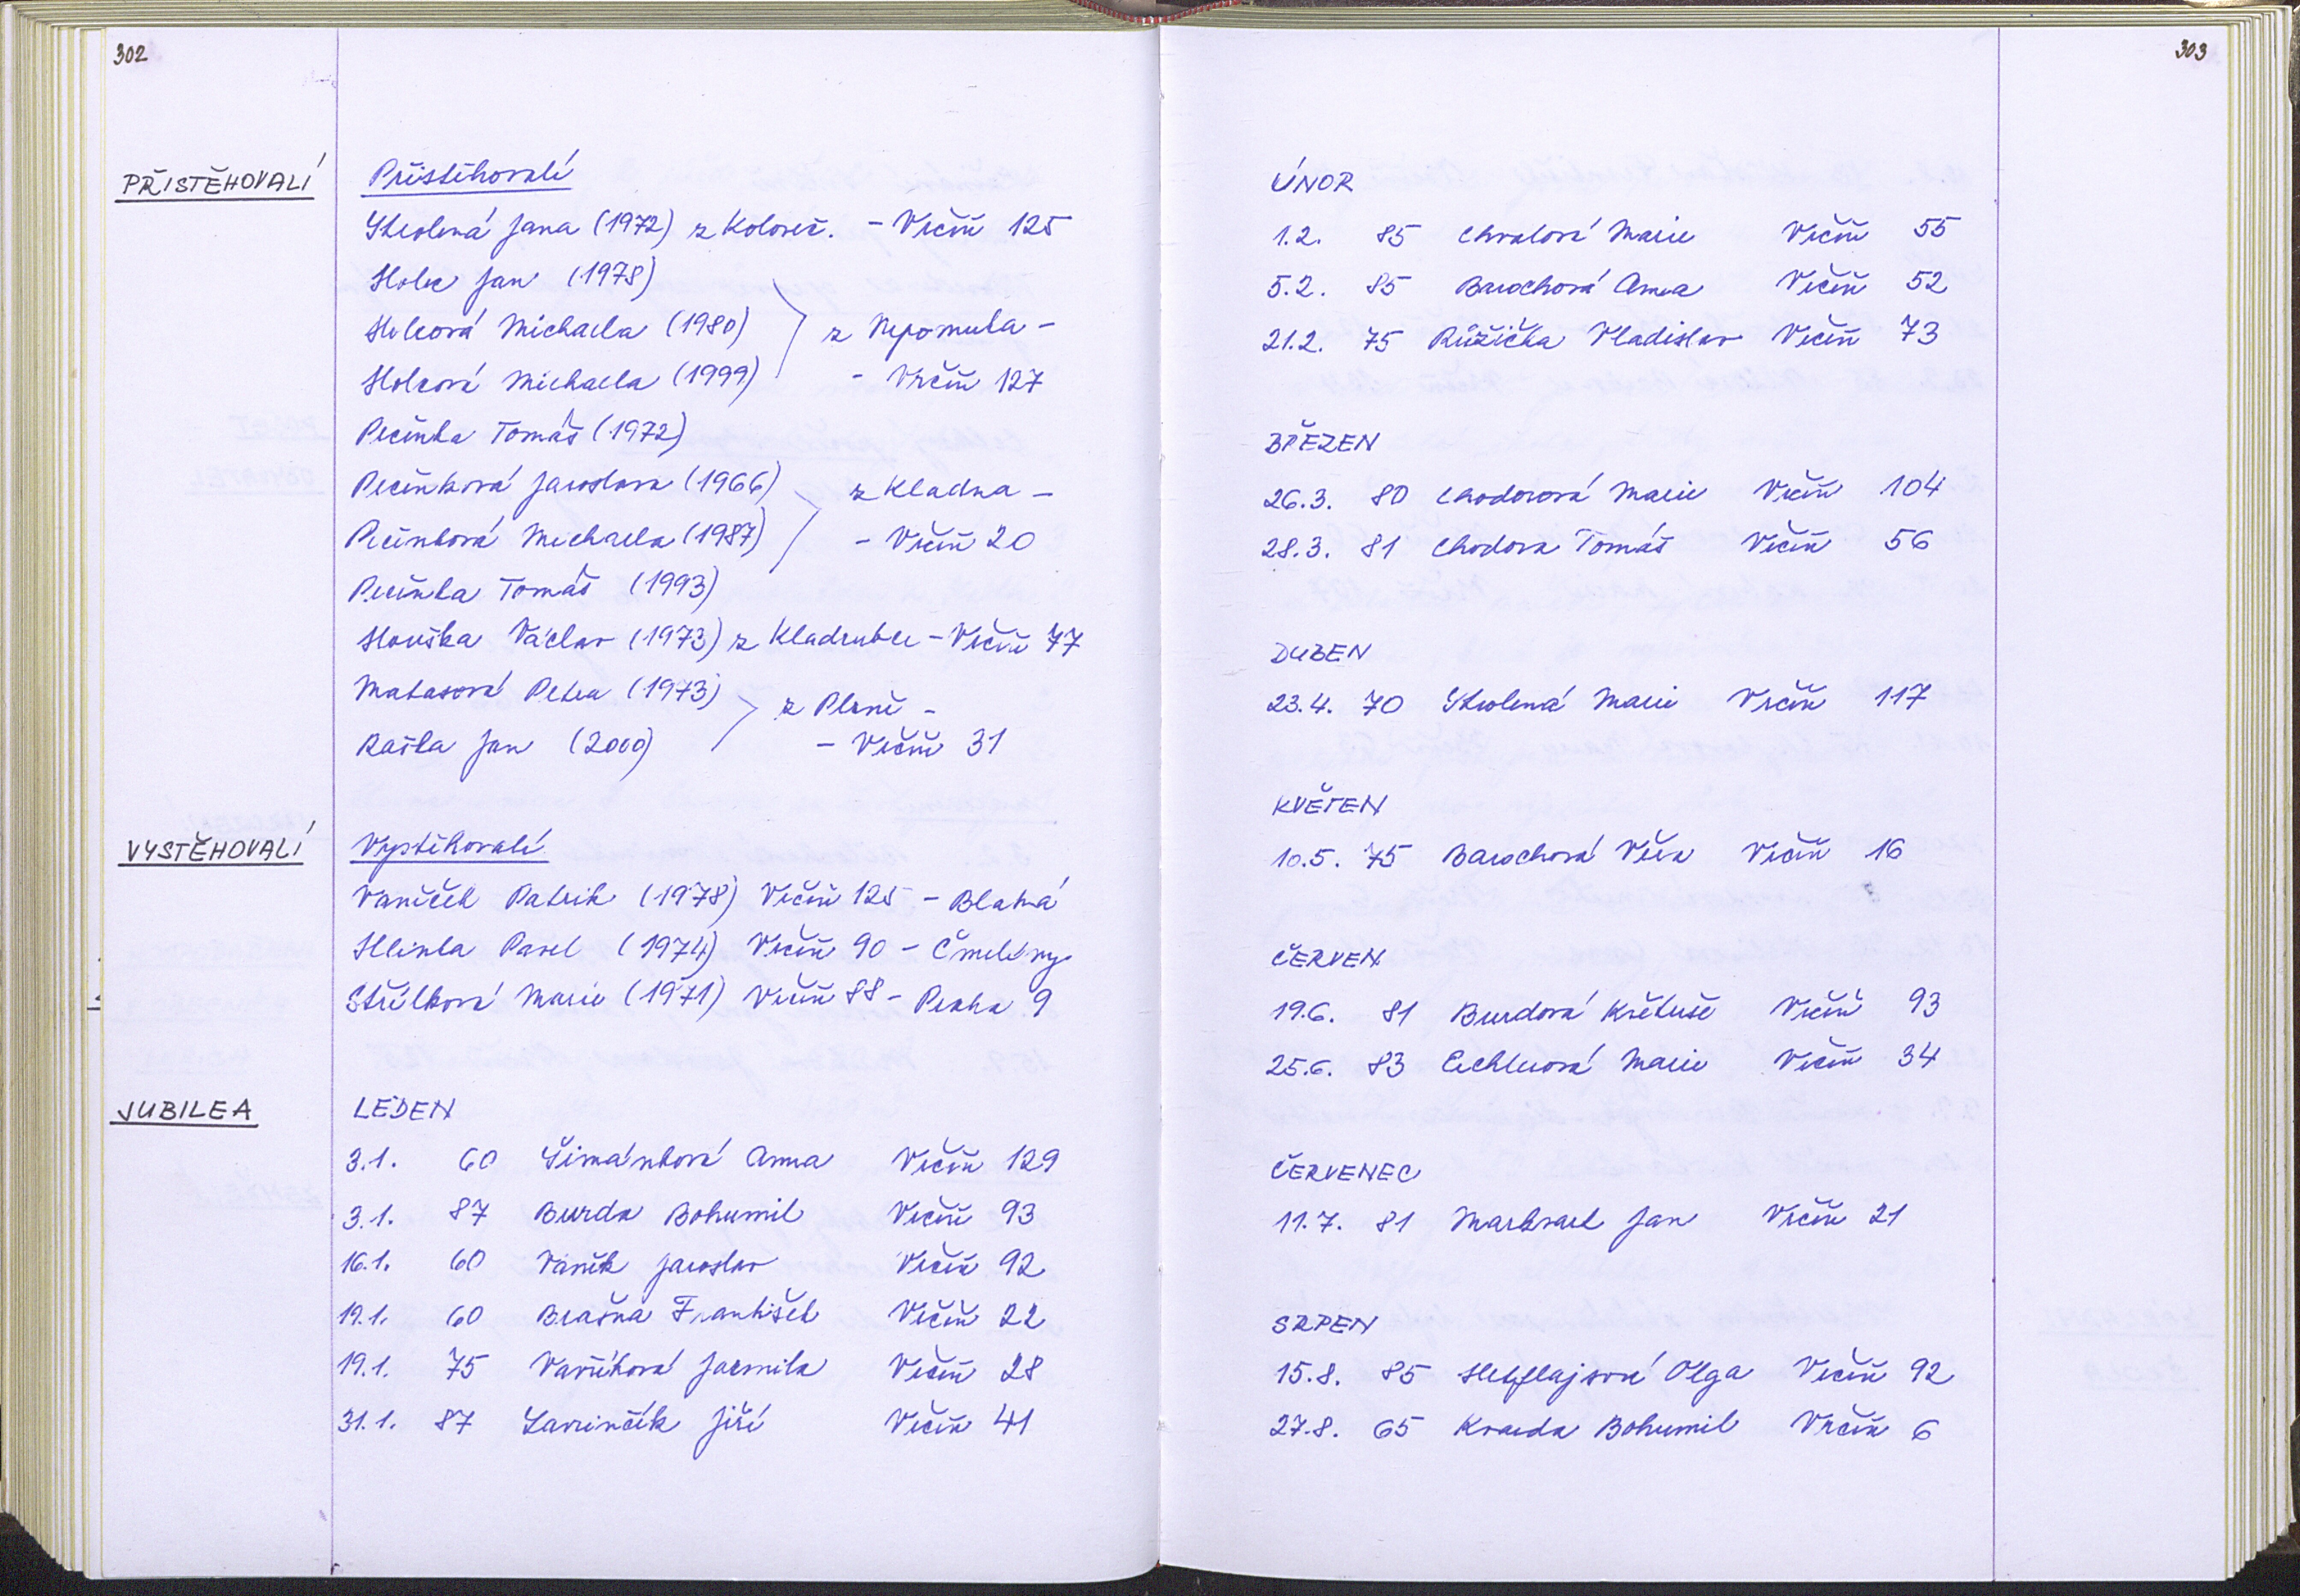 302
PŘISTĚHOVALÍ
Přistěhovalí
Skolená Jana (1972) z Koloveč. - Vrčeň 125
Holec Jan (1978)
Holcová Michaela (1980) z Nepomuka -
Holcová Michaela (1999) - Vrčeň 127
Pečinka Tomáš (1972)
Pečinková Jaroslava (1966) z Kladna -
Pečinková Michaela (1987) - Vrčeň 20
Pečinka Tomáš (1993)
Houška Václav (1973) z Kladrubec - Vrčeň 77
Matasová Petra (1973) z Plzně -
Raška Jan (2000) - Vrčeň 31
VYSTĚHOVALÍ
Vystěhovalí
Vaníček Patrik (1978) Vrčeň 125 - Blatná
Hlinka Pavel (1974) Vrčeň 90 - Čmelíny
Střelková Marie (1971) Vrčeň 88 - Praha 9
JUBILEA
LEDEN
3.1. 60 Šimánková Anna Vrčeň 129
3.1. 87 Burda Bohumil Vrčeň 93
16.1. 60 Vaněk Jaroslav Vrčeň 92
19.1. 60 Brašna František Vrčeň 22
19.1. 75 Vaňková Jarmila Vrčeň 28
31.1. 87 Lavrinčík Jiří Vrčeň 41
303
ÚNOR
1.2. 85 Chvalová Marie Vrčeň 55
5.2. 85 Barochová Anna Vrčeň 52
21.2. 75 Růžička Vladislav Vrčeň 73
BŘEZEN
26.3. 80 Chodorová Marie Vrčeň 104
28.3. 81 Chodora Tomáš Vrčeň 56
DUBEN
23.4. 70 Skolená Marie Vrčeň 117
KVĚTEN
10.5. 75 Barochová Věra Vrčeň 16
ČERVEN
19.6. 81 Burdová Květuše Vrčeň 93
25.6. 83 Cechlerová Marie Vrčeň 34
ČERVENEC
11.7. 81 Markvart Jan Vrčeň 21
SRPEN
15.8. 85 Olga Vrčeň 92
27.8. 65 Kravda Bohumil Vrčeň 6